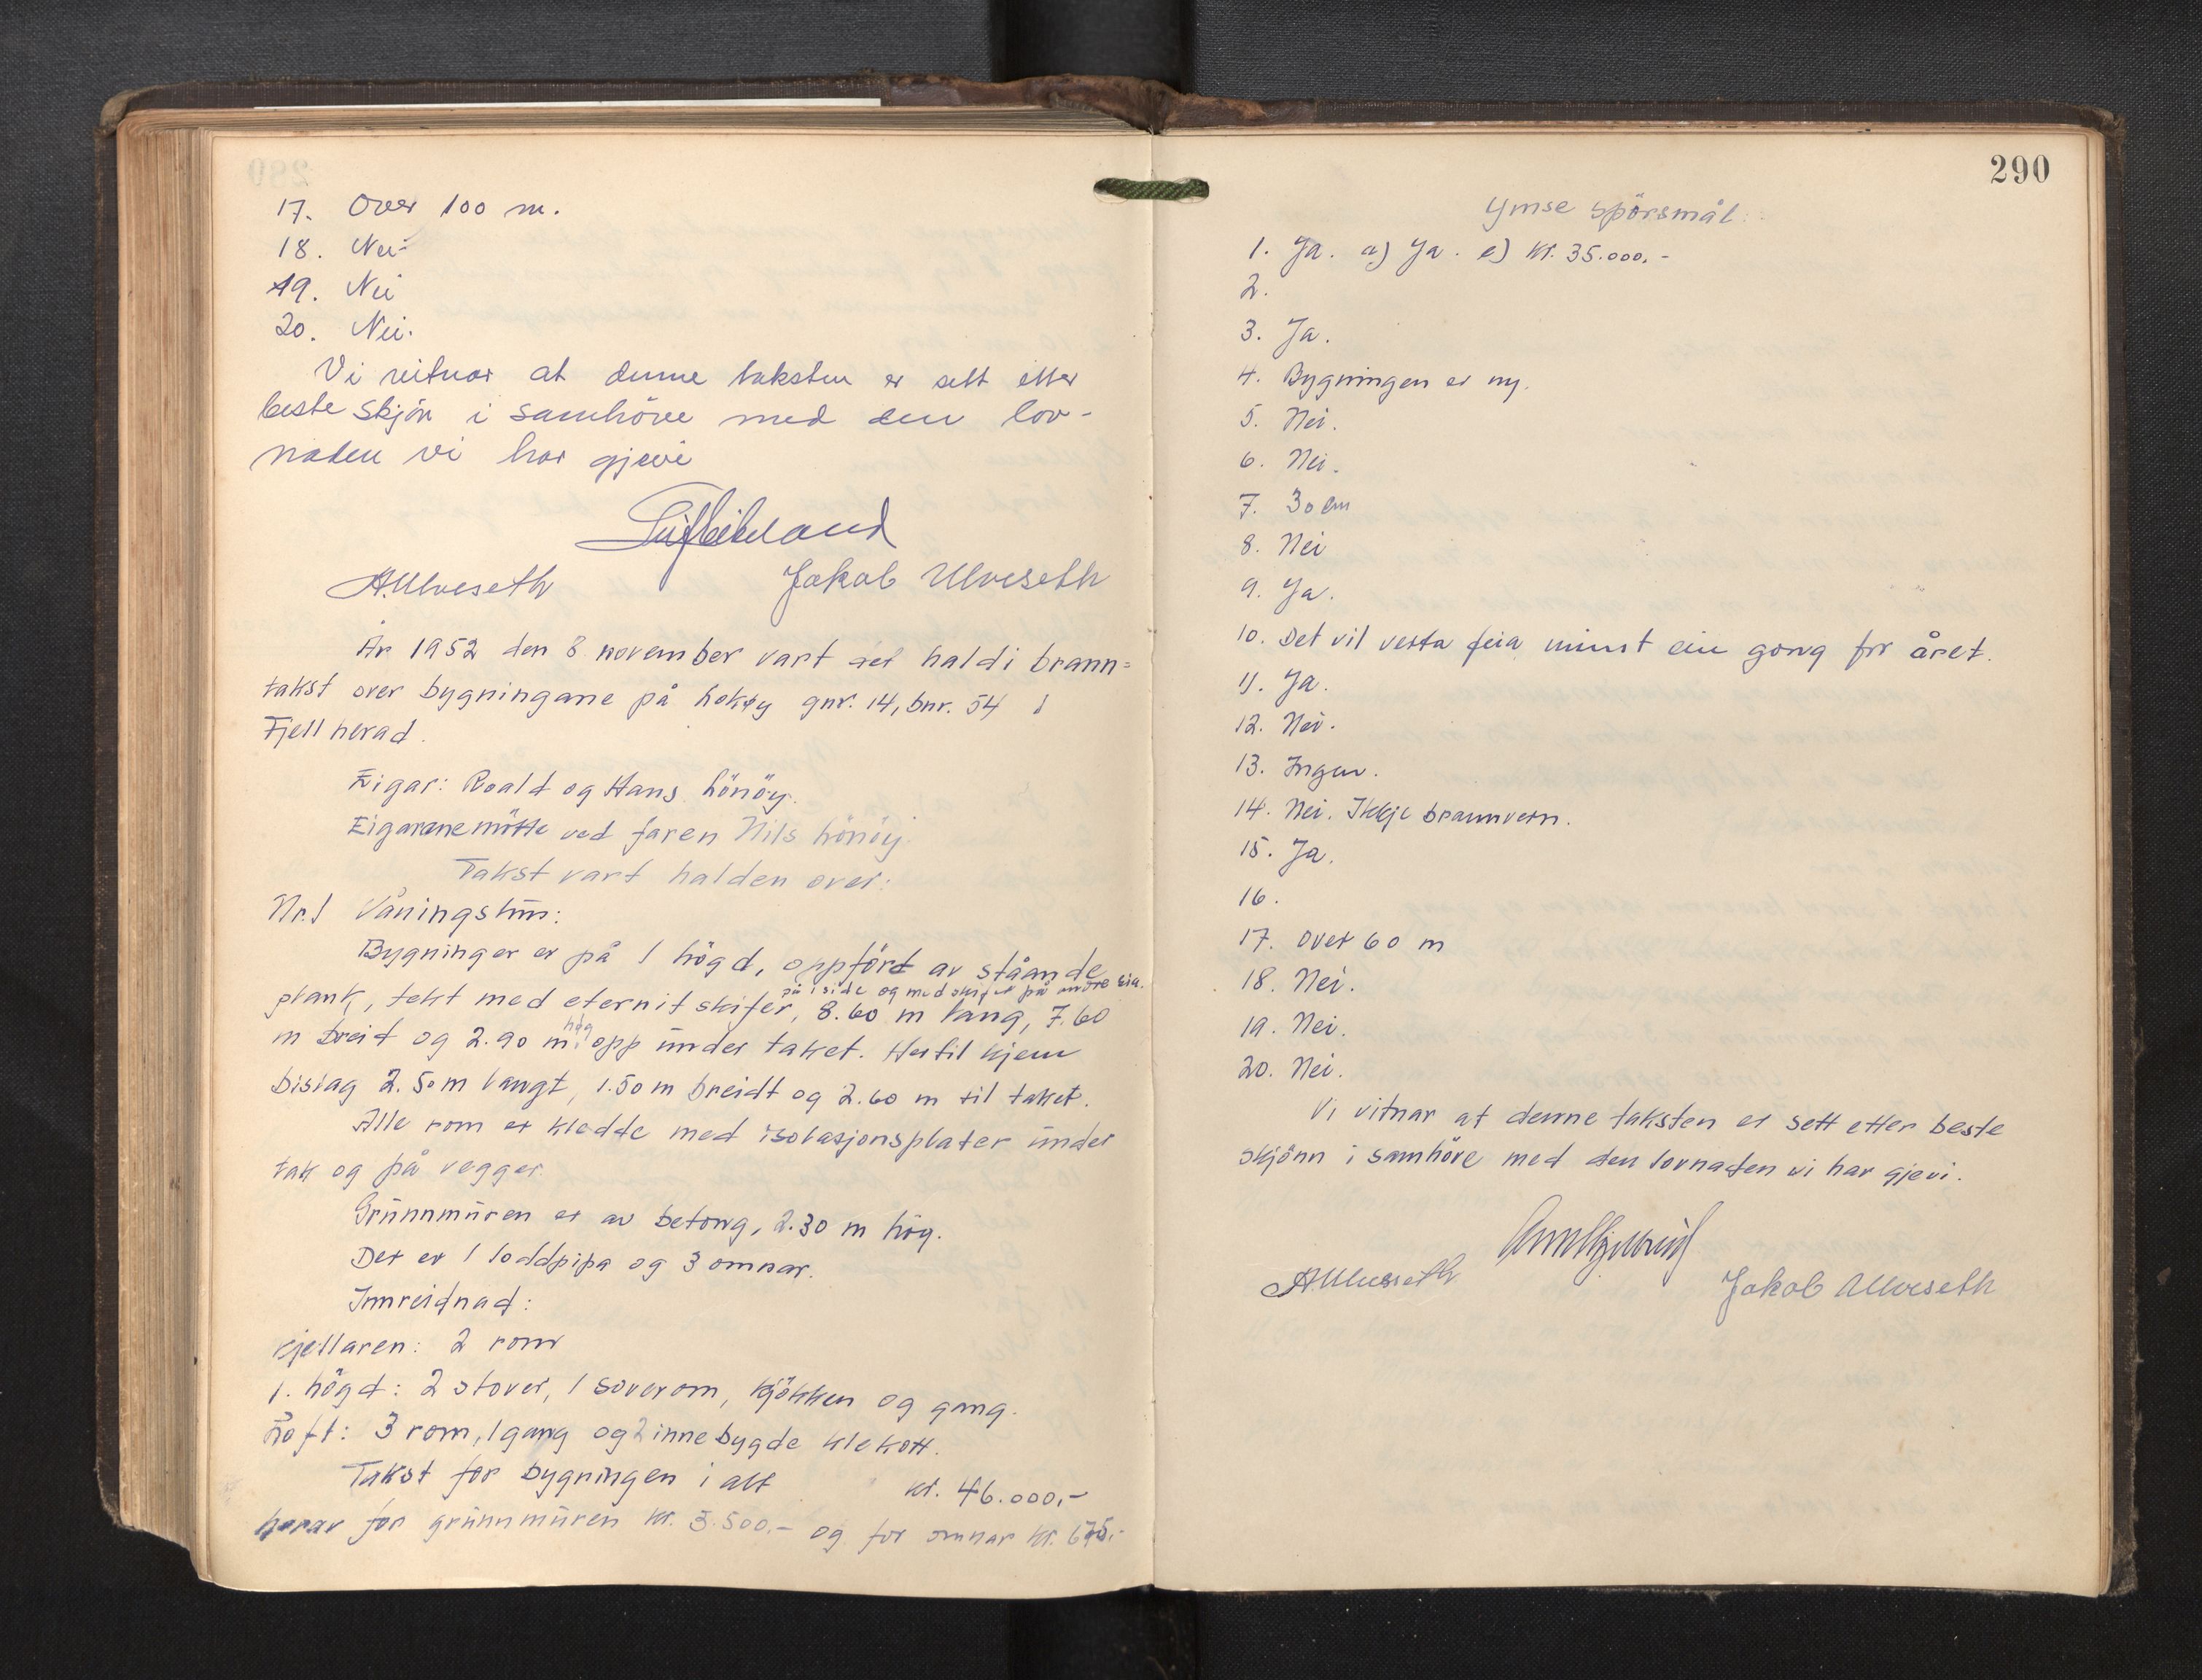 17. Over 100 m.
18. Nei
19. Nei
20. Nei.
Vi vitnar at denne taksten er sett etter
beste skjön i samhöve med den lov-
naden vi har gjevi
A. Ulveseth Jakob Ulveseth
År 1952 den 8 november vart det haldi brann=
takst over bygningane på Lokøy gnr. 14, bnr. 54 i
Fjell herad.
Eigar: Roald og Hans Lönöy.
Eigarane mötte ved faren Nils Lönöy
Takst vart halden over:
Nr. 1 Våningshus:
Bygningen er på 1 högd, oppfört av ståande
på 1 side og med skifer på andre sia.
plank, tekt med eternitskifer, 8.60 m lang, 7.60
høg
m breid og 2.90 m opp under taket. Hertil kjem
bislag 2.50 m langt, 1.50 m breidt og 2.60 m til taket.
Alle rom er kledde med isolasjonsplater under
tak og på vegger.
Grunnmuren er av betong, 2.30 m hög.
Det er 1 loddpipa og 3 omnar.
Innreidnad:
Kjellaren: 2 rom
1. högd: 2 stover, 1 soverom, kjökken og gang.
Loft: 3 rom, 1 gang og 2 innebygde klekott.
Takst for bygningen i alt kr. 46.000,-
herav for grunnmuren kr. 3.500,- og for omnar kr. 675,-
290
Ymse spörsmål:
1. Ja. a) Ja. e) kr. 35.000,-
2.
3. Ja.
4. Bygningen er ny.
5. Nei.
6. Nei.
7. 30 cm
8. Nei
9. Ja.
10. Det vil verta feia minst ein gong for året.
11. Ja.
12. Nei.
13. Ingen.
14. Nei. Ikkje brannvern.
15. Ja.
16.
17. Over 60 m
18. Nei.
19. Nei.
20. Nei.
Vi vitnar at denne taksten er sett etter beste
skjönn i samhöve med den lovnaden vi har gjevi.
A. Ulveseth Jakob Ulveseth